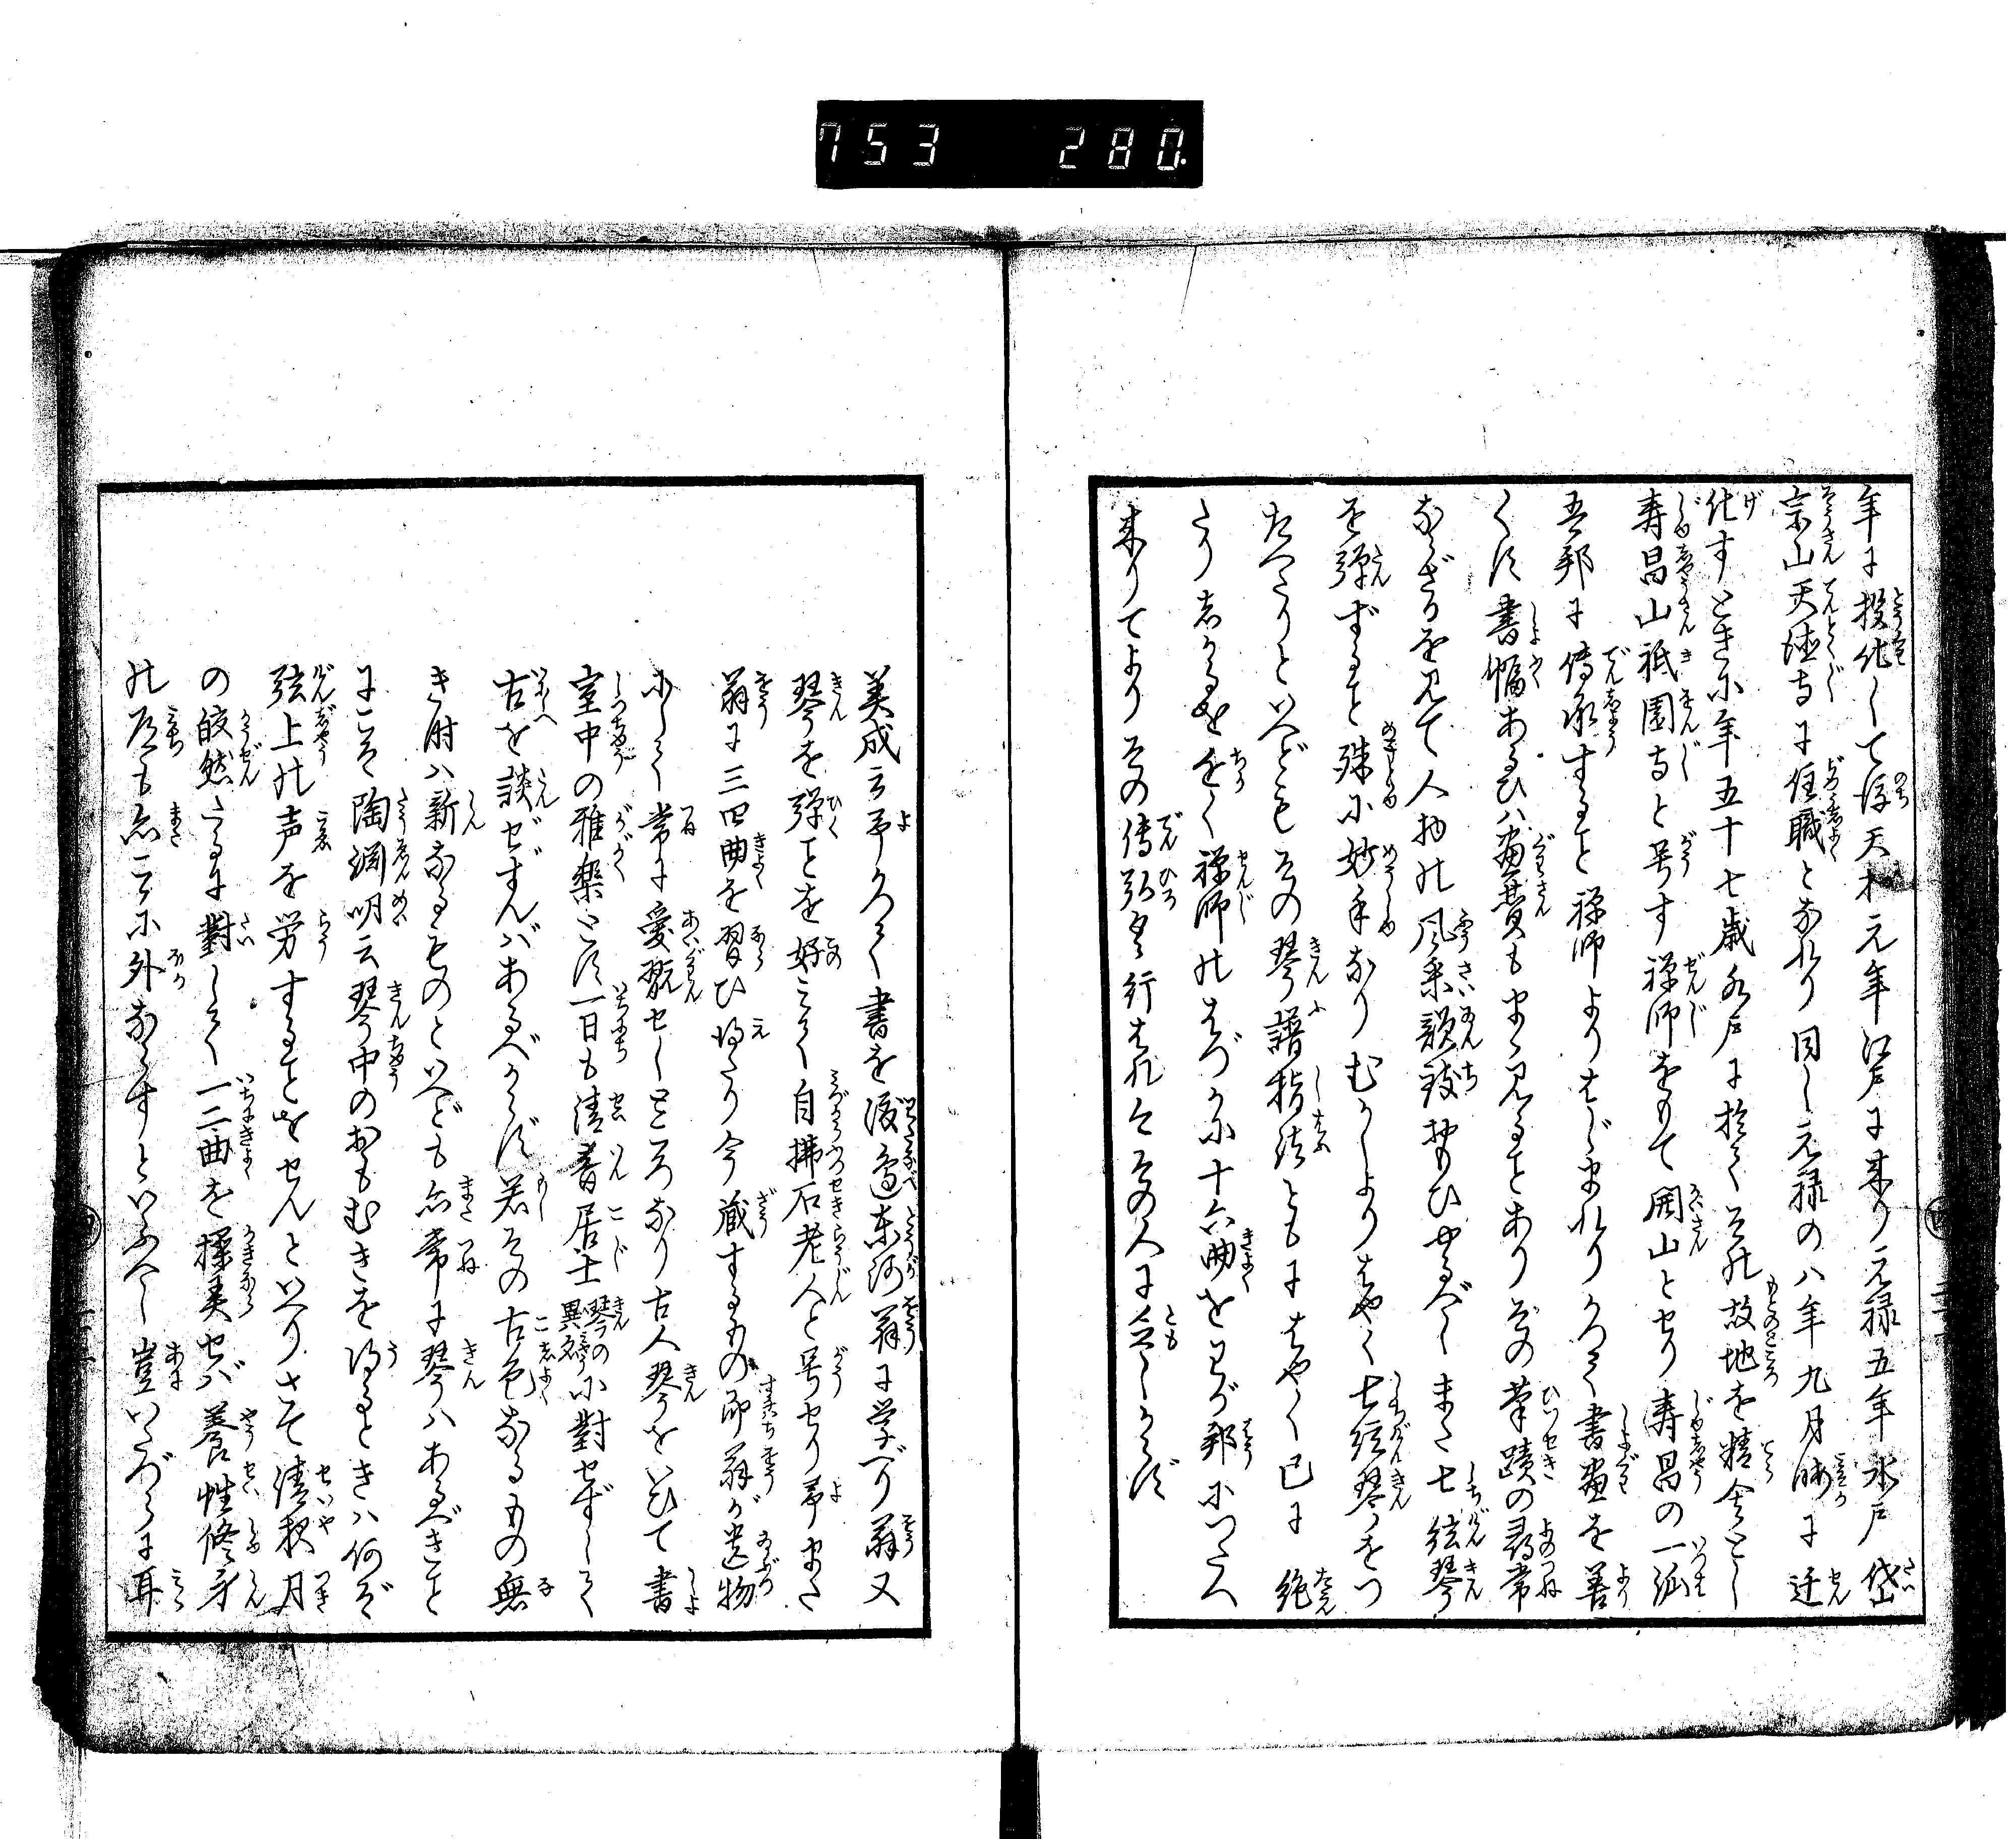 753 280.
年に投化して後天和元年江戸に来り元禄五年水戸岱
宗山天徳寺に住職となれり同し元禄の八年九月晦に迁
化すときに年五十七歳水戸に於て其の故地を精舎とし
寿昌山祇園寺と号す禅師をもて開山とせり寿昌の一派
吾邦に傳承すること禅師よりはじまれりかつて書画を善
くす書幅あるひハ画賛もまゝ見ることあり其の筆蹟の尋常
ならざるを見て人物の風采韻致おもひやるべしまた七絃琴
を弾ずること殊に妙手なりむかしよりはやく七絃琴をつ
たへたりといへどもその琴譜指法ともにはやく已に絶
たりしかるを心越禅師のはづかに十六曲をわが邦につたへ
来りてよりその傳弘く行はれ今その人に乏しからず
美成云予かつて書を渡邉東河翁に学べり翁又
琴を弾ことを好みて自拂石老人と号せり予また
翁に三四曲を習ひ得たり今蔵するもの即翁が遺物
にして常に愛翫せしところなり古人琴をいひて書
室中の雅楽とす一日も清音居士琴の異名に對せずして
古を談ぜずんばあるべからず若その古色なるもの無
き时ハ新なるものといへども亦常に琴ハあるべきこと
にこそ陶渊明云琴中のおもむきを得るときハ何ぞ
弦上の声を労することをせんといへりさて清夜月
の皎然たるに對して一二曲を操奏せバ養性修身
の道も亦こゝに外ならすといふへし豈いたづらに耳